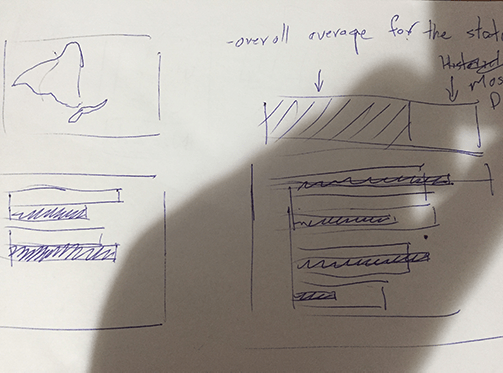 -overall average for the
Mos
D